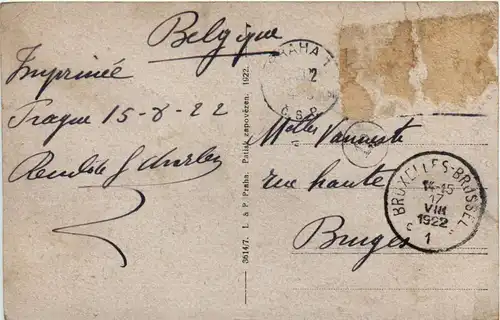 Belgique
Imprimée
Prague 15-8-22
PRAHA 1
Č.S.P.
3614/7. L. & P. Praha. Patisk zapovězen. 1922.
Melles Vanneste
rue haute
Bruges
BRUXELLES-BRUSSEL
14-15
17
VIII
1922
C 1